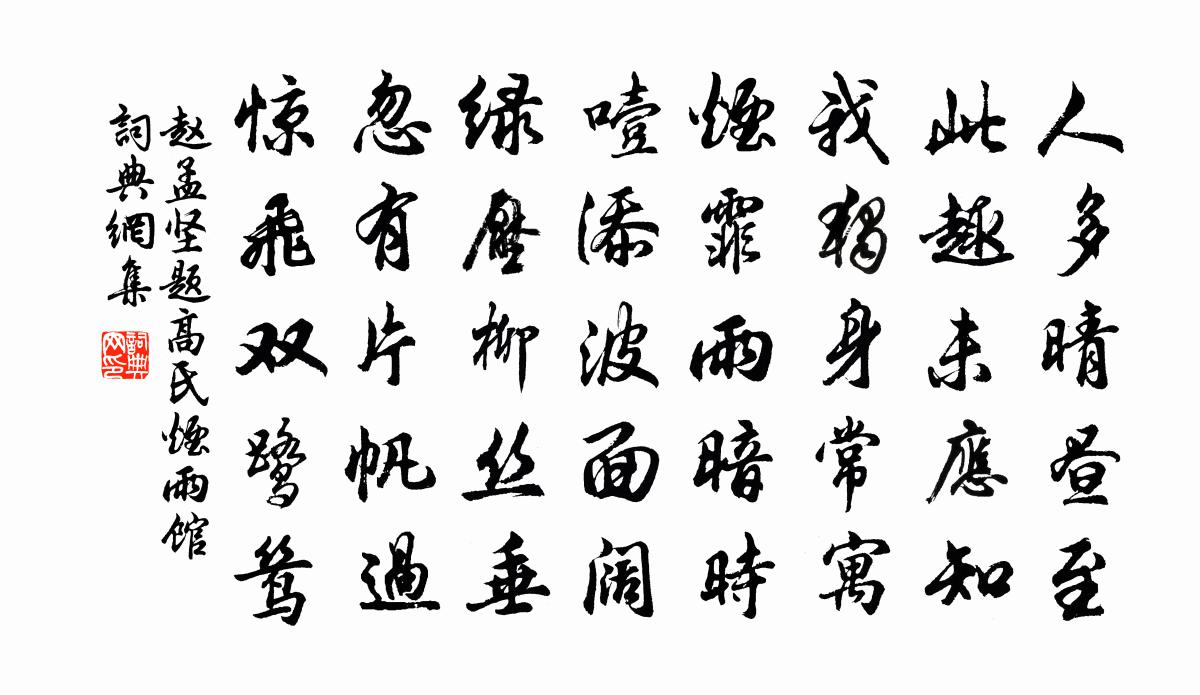 人多晴昼至
此趣未應知
我独身常寓
煙霏雨暗時
噎添波面阔
绿壓柳丝垂
忽有片帆過
惊飛双鹭鸶
赵孟坚题高氏煙雨馆
詞典網集
詞典网印